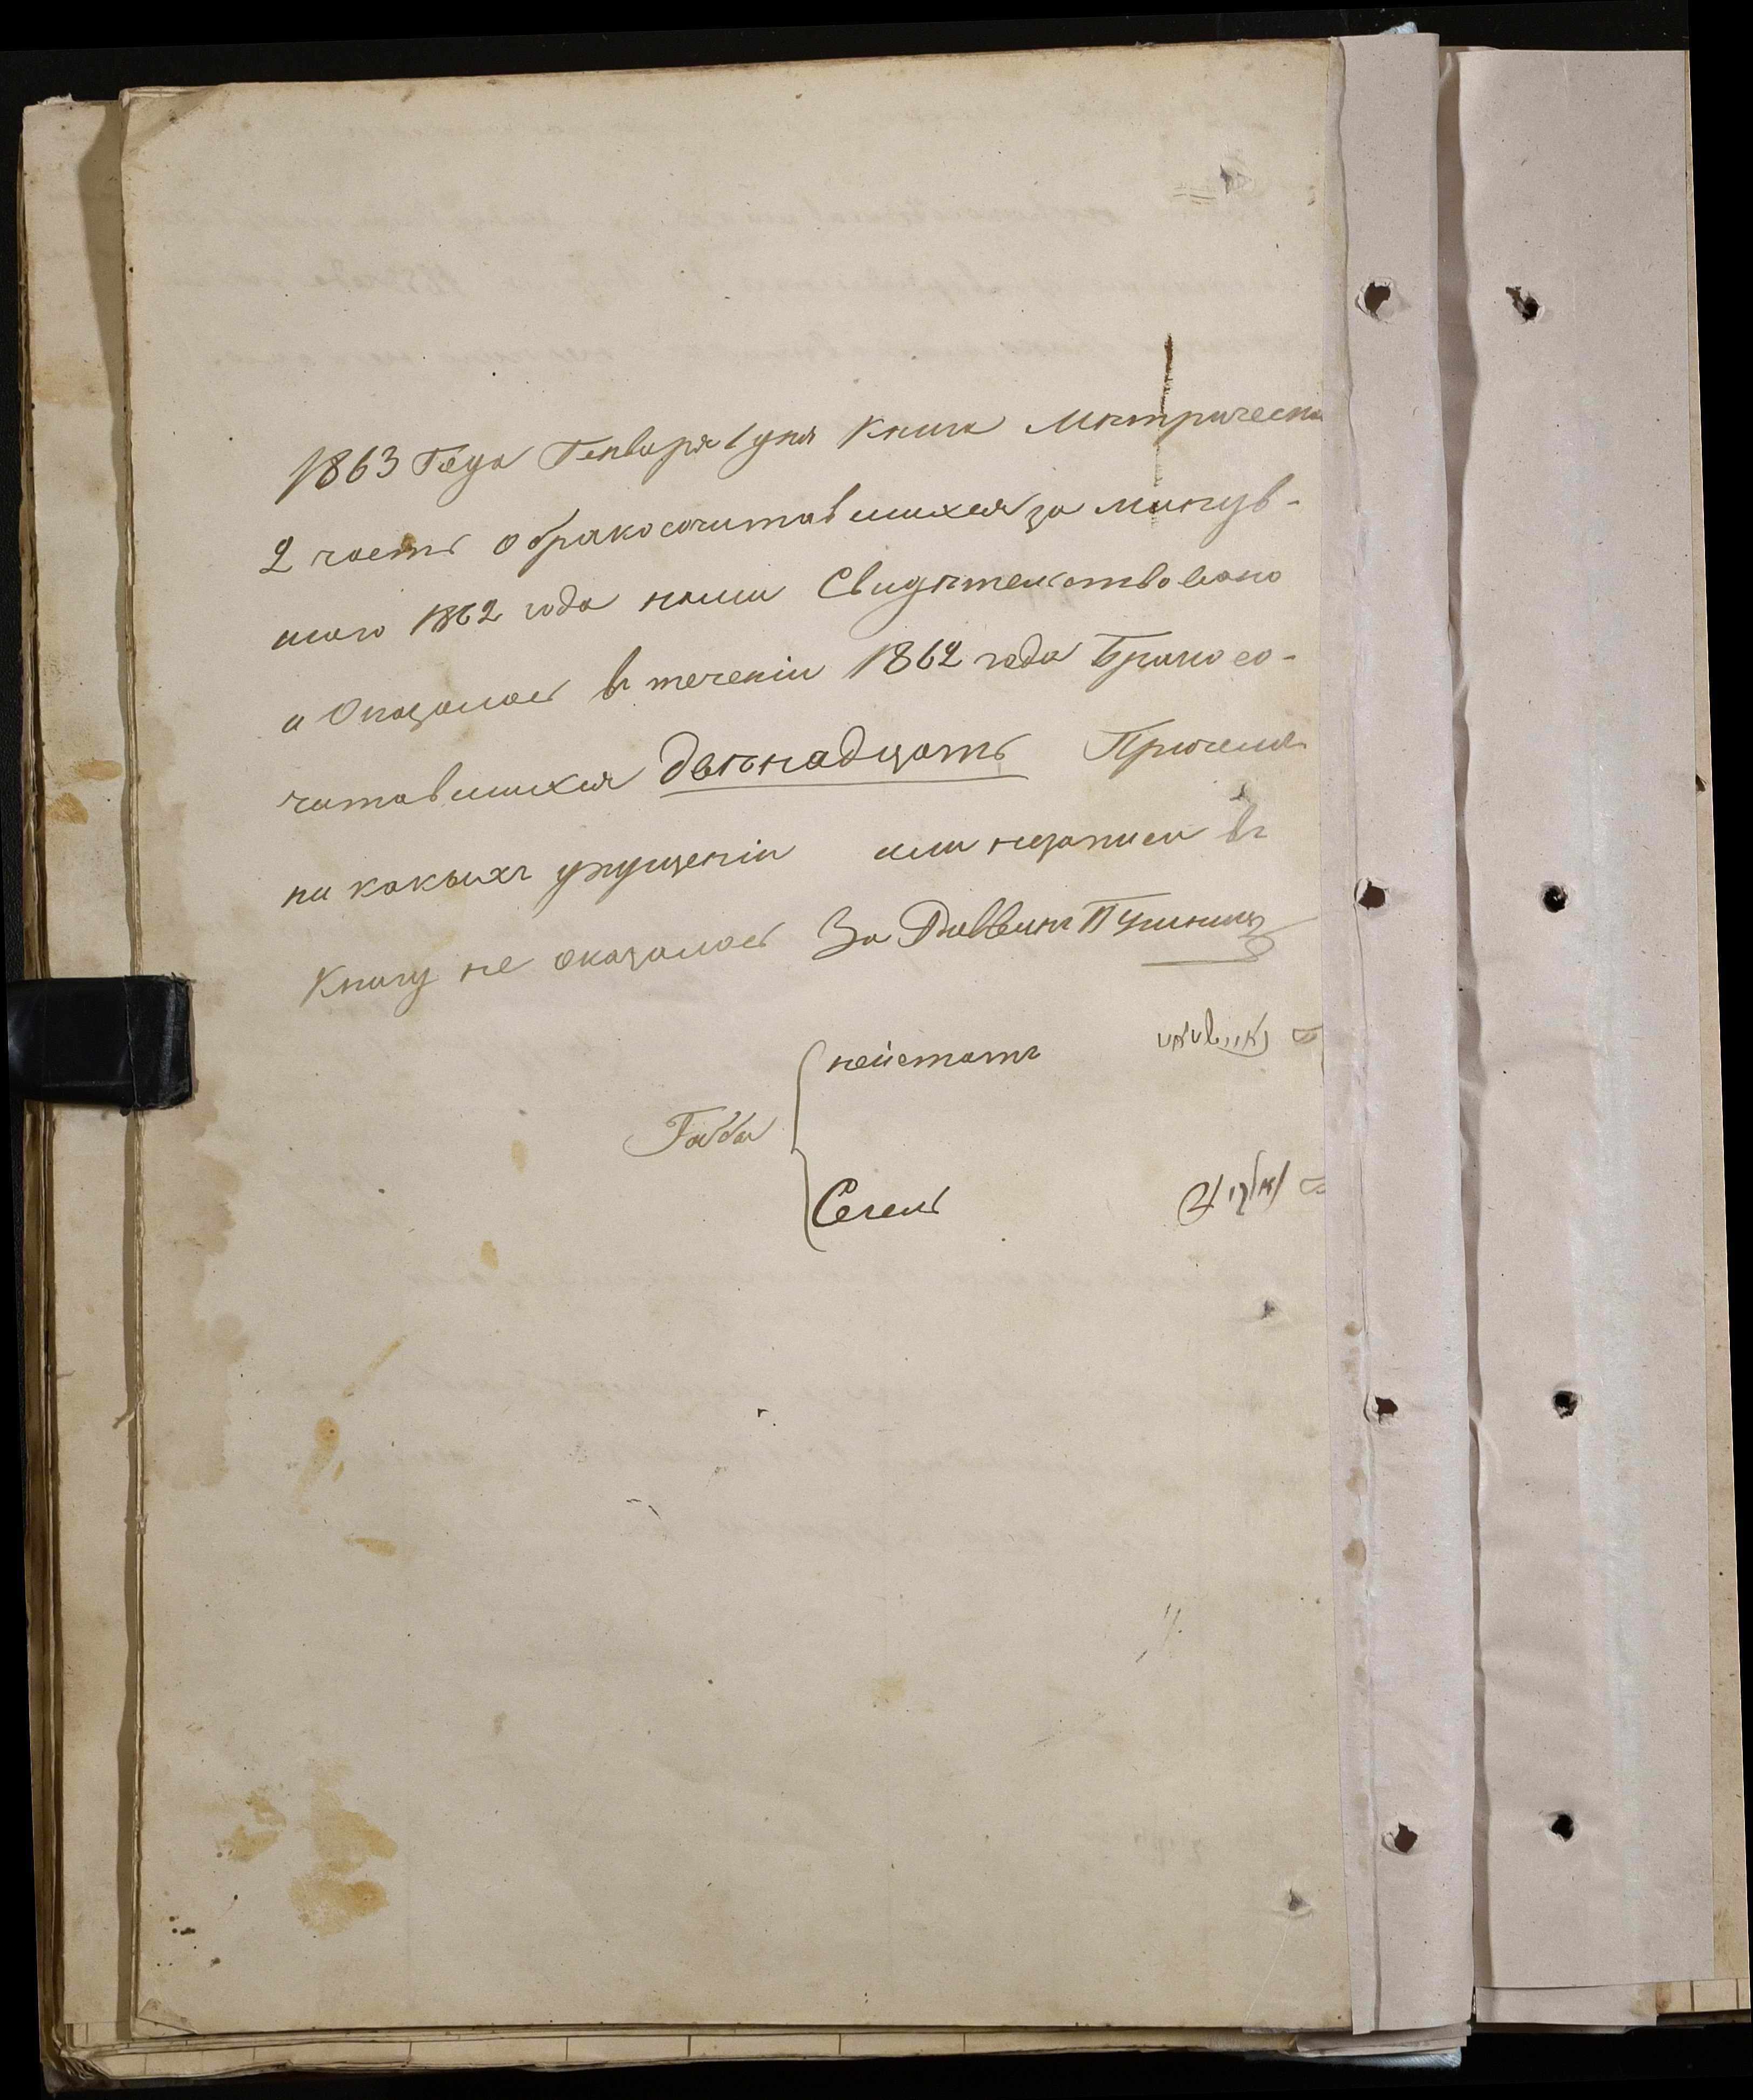 1863 Года Генваря 1 дня Книга Мѣтрическа
2 часть о бракосочитавшихся за минув-
шаго 1862 года нами Свидѣтельствовано
и Оказалось въ теченіи 1862 года Бракосо-
читавшихся двѣнадцать Причемъ
ни какыихъ упущеніи или незаписи въ
Книгу не оказалось За
Габаи
Сегель